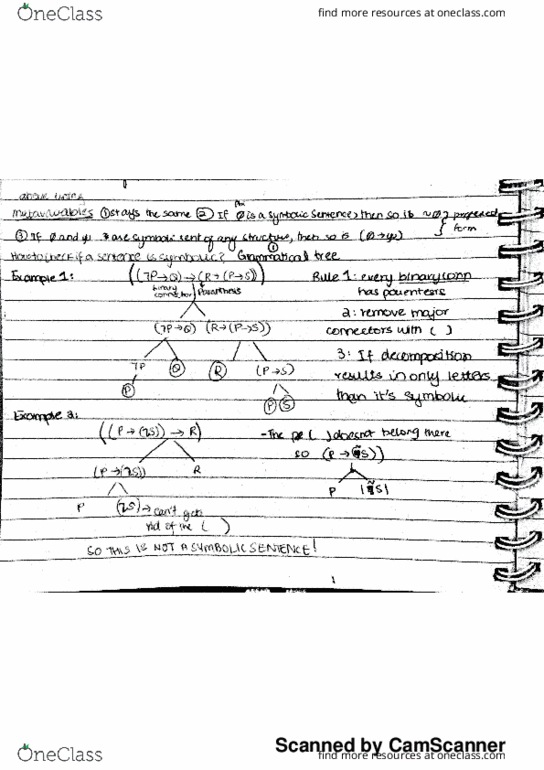 OneClass
find more resources at oneclass.com
above using
metavariables ① stays the same ② If Ø is a symbolic sentence, then so is ~Ø } proposed form
③ If Ø and ψ are symbolic sent of any structure, then so is (Ø→ψ)
How to check if a sentence is symbolic? Grammatical tree
Example 1:
((¬P→Q)→(R→(P→S))
binary connector
Parenthesis
(¬P→Q) (R→(P→S))
¬P Q R (P→S)
P P S
Rule 1: every binary conn
has parentesis
2: remove major
connectors with ( )
3: If decomposition
results in only letters
than it's symbolic
Example 2:
((P→(¬S))→R)
(P→(¬S)) R
P (¬S) → can't get
rid of the ( )
- The ( ) doesnt belong there
so (P→¬S)
P
SO THIS IS NOT A SYMBOLIC SENTENCE!
1
Scanned by CamScanner
OneClass
find more resources at oneclass.com